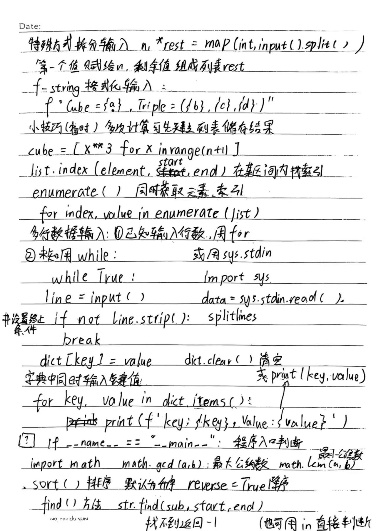 Date:
特殊方式拆分输入 n, *rest = map(int,input().split())
第一个值赋给n, 剩余值组成列表rest
f-string 格式化输入:
f"Cube={a}, Triple=({b},{c},{d})"
小技巧(省时) 多次计算可先建立列表储存结果
cube = [x**3 for x in range(n+1)]
list.index(element, start, end) 在某区间内找索引
enumerate() 同时获取元素、索引
for index, value in enumerate(list)
多行数据输入: ①已知输入行数, 用for
②未知用while: 或用sys.stdin
while True: import sys
line = input() data = sys.stdin.read().
并设置终止条件 if not line.strip(): splitlines
break
dict[key] = value dict.clear() 清空
字典中同时输入多键值 或print(key,value)
for key, value in dict.items():
print(f'key:{key}, Value:{value}')
[?] If __name__ == "__main__": 程序入口判断
import math math.gcd(a,b):最大公约数 math.lcm(a,b) 最小公倍数
.sort() 排序 默认为升序 reverse=True降序
find()方法 str.find(sub,start,end)
找不到返回-1 (也可用in直接判断